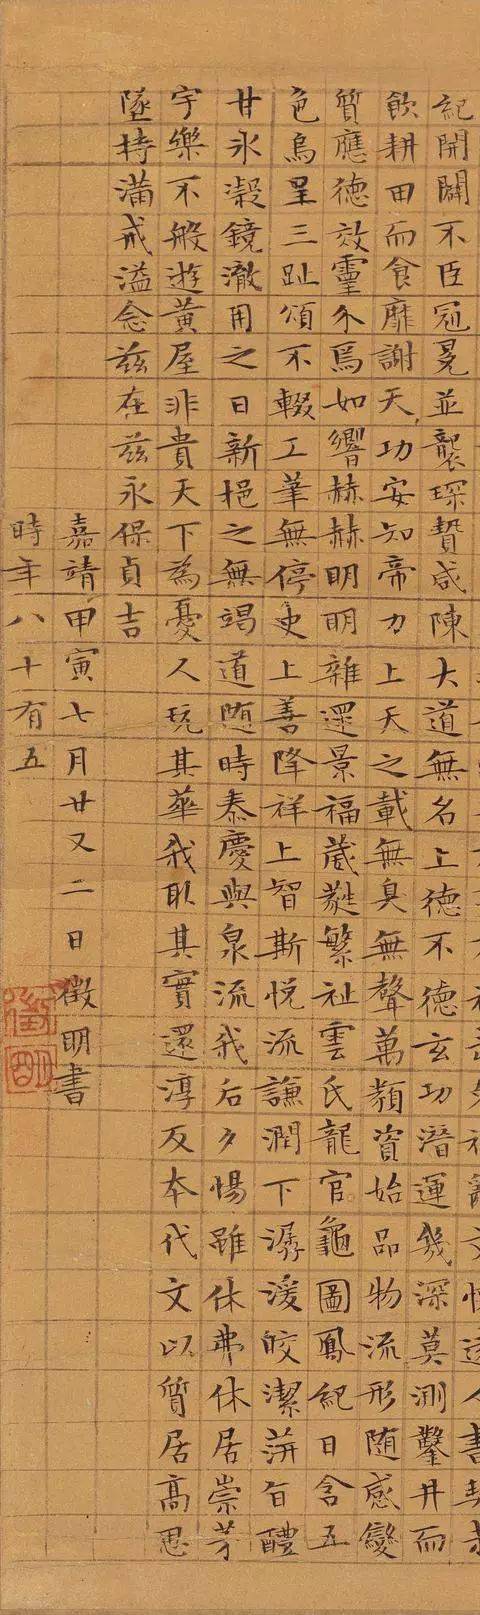 紀開闢不臣冠冕並襲琛贄咸陳大道無名上德不德玄功潛運幾深莫測鑿井而
飲耕田而食靡謝天功安知帝力上天之載無臭無聲萬類資始品物流形随感變
質應德效靈介焉如響赫赫明明雜遝景福葳蕤繁祉雲氏龍官龜圖鳳紀日含五
色烏呈三趾頌不輟工筆無停史上善降祥上智斯悅流謙潤下潺湲皎潔蓱旨醴
甘冰凝鏡澈用之日新挹之無竭道随時泰慶與泉流我后夕惕雖休弗休居崇茅
宇樂不般遊黃屋非貴天下為憂人玩其華我取其實還淳反本代文以質居高思
墜持滿戒溢念茲在茲永保貞吉
嘉靖甲寅七月廿又二日徵明書
時年八十有五
徵明